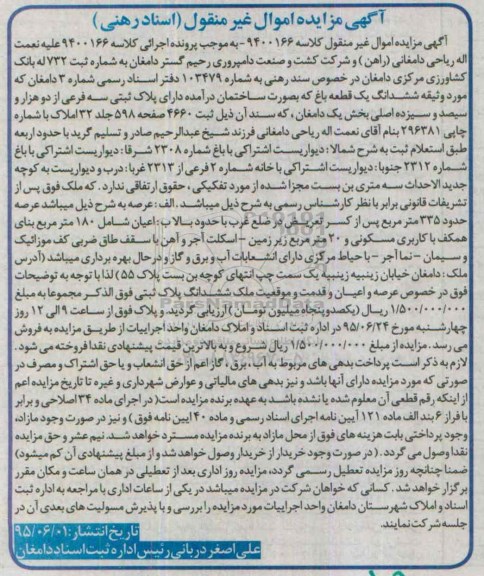 آگهی مزایده اموال غیر منقول (اسناد رهنی)
آگهی مزایده اموال غیر منقول کلاسه ۹۴۰۰۱۶۶ - به موجب پرونده اجرائی کلاسه ۹۴۰۰۱۶۶ علیه نعمت
اله ریاحی دامغانی (راهن) و شرکت کشت و صنعت دامپروری رحیم گستر دامغان به شماره ثبت ۷۳۲ له بانک
کشاورزی مرکزی دامغان در خصوص سند رهنی به شماره ۱۰۳۴۷۹ دفتر اسناد رسمی شماره ۳ دامغان که
مورد وثیقه ششدانگ یک قطعه باغ که بصورت ساختمان درآمده دارای پلاک ثبتی سه فرعی از دو هزار و
سیصد و سیزده اصلی بخش یک دامغان ، که سند آن ذیل ثبت ۴۶۶۰ صفحه ۵۹۸ جلد ۳۲ املاک با شماره
چاپی ۲۹۶۳۸۱ بنام آقای نعمت اله ریاحی دامغانی فرزند شیخ عبدالرحیم صادر و تسلیم گردید با حدود اربعه
طبق استعلام ثبت به شرح شمالا: دیواریست اشتراکی با باغ شماره ۲۳۰۸ شرقا: دیواریست اشتراکی با باغ
شماره ۲۳۱۲ جنوبا: دیواریست اشتراکی با خانه شماره ۲ فرعی از ۲۳۱۳ غربا: درب و دیواریست به کوچه
جدید الاحداث سه متری بن بست مجزا شده از مورد تفکیکی ، حقوق ارتفاقی ندارد . که ملک فوق پس از
تشریفات قانونی برابر با نظر کارشناس رسمی به شرح ذیل میباشد . الف : عرصه به شرح ذیل میباشد عرصه
حدود ۳۳۵ متر مربع پس از کسر عقب نشینی در ضلع غرب با حدود بالا ب: اعیان شامل ۱۸۰ متر مربع بنای
همکف با کاربری مسکونی و ۲۰ متر مربع زیرزمین - اسکلت آجر و آهن با سقف طاق ضربی کف موزائیک
و سیمان - نما آجر - با حیاط مرکزی دارای انشعابات آب و برق و گاز و در حال بهره برداری میباشد (آدرس
ملک : دامغان خیابان زینبیه زینبیه یک سمت چپ انتهای کوچه بن بست پلاک ۵۵) لذا با توجه به توضیحات
فوق در خصوص عرصه و اعیان و قدمت و موقعیت ملک ششدانگ پلاک ثبتی فوق الذکر مجموعا به مبلغ
۱/۵۰۰/۰۰۰/۰۰۰ ریال (یکصدوپنجاه میلیون تومان) ارزیابی گردید . و پلاک فوق از ساعت ۹ الی ۱۲ روز
چهارشنبه مورخ ۹۵/۰۶/۲۴ در اداره ثبت اسناد و املاک دامغان واحد اجراییات از طریق مزایده به فروش
می رسد . مزایده از مبلغ ۱/۵۰۰/۰۰۰/۰۰۰ ریال شروع و به بالاترین قیمت پیشنهادی نقدا فروخته می شود .
لازم به ذکر است پرداخت بدهی های مربوط به آب، برق ، گاز اعم از حق انشعاب و یا حق اشتراک و مصرف در
صورتی که مورد مزایده دارای آنها باشد و نیز بدهی های مالیاتی و عوارض شهرداری و غیره تا تاریخ مزایده اعم
از اینکه رقم قطعی آن معلوم شده یا نشده باشد به عهده برنده مزایده است (در اجرای ماده ۳۴ اصلاحی و برابر
با فراز ۶ بند الف ماده ۱۲۱ آیین نامه اجرای اسناد رسمی و ماده ۴۰ آیین نامه فوق) و نیز در صورت وجود مازاد،
وجود پرداختی بابت هزینه های فوق از محل مازاد به برنده مزایده مسترد خواهد شد. نیم عشر و حق مزایده
نقدا وصول می گردد . (در صورت وجود خریدار از خریدار وصول خواهد شد و از مبلغ پیشنهادی آن کم میشود)
ضمنا چنانچه روز مزایده تعطیل رسمی گردد، مزایده روز اداری بعد از تعطیلی در همان ساعت و مکان مقرر
برگزار خواهد شد . کسانی که خواهان شرکت در مزایده میباشد در یکی از ساعات اداری با مراجعه به اداره ثبت
اسناد و املاک شهرستان دامغان واحد اجراییات مورد مزایده را بررسی و با پذیرش مسولیت های بعدی آن در
جلسه شرکت نمایند.
تاریخ انتشار: ۹۵/۰۶/۰۱
علی اصغر دربانی رئیس اداره ثبت اسناد دامغان